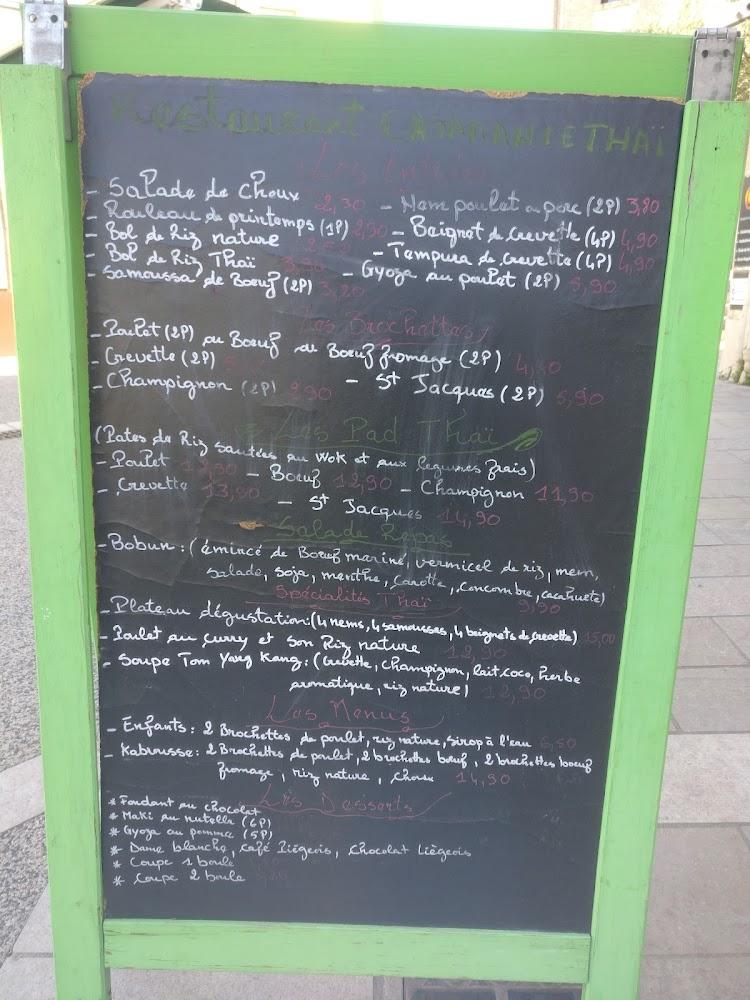 Restaurant THAÏ
Les Entrées
- Salade de Choux 2,30 - Nem poulet ou porc (2P) 3,80
- Rouleau de printemps (1P) 2,90 - Beignet de Crevette (4P) 4,90
- Bol de Riz nature - Tempura de crevette (4P) 4,90
- Bol de Riz Thaï - Gyoza au poulet (2P) 5,90
- Samoussa de Boeuf (2P) 3,20
Les Brochettes
- Poulet (2P) ou Boeuf ou Boeuf fromage (2P)
- Crevette (2P) - St Jacques (2P) 5,90
- Champignon (2P)
Les Pad Thaï
(Pates de Riz sautées au Wok et aux legumes frais)
- Poulet 12,90 - Boeuf 12,90 - Champignon 11,90
- Crevette 13,90 - St Jacques 14,90
Salade Repas
- Bobun : (émincé de Boeuf mariné, vermicel de riz, nem,
salade, soja, menthe, carotte, concombre, cacahuete)
9,90
Spécialités Thaï
- Plateau dégustation: (4 nems, 4 samousses, 4 beignets de crevette) 15,00
- Poulet au curry et son Riz nature 12,90
- Soupe Tom Yang Kang : (Crevette, champignon, lait coco, herbe
aromatique, riz nature) 12,90
Les Menus
- Enfants : 2 Brochettes de poulet, riz nature, sirop à l'eau 6,50
- Kabrousse : 2 Brochettes de poulet, 2 brochettes boeuf, 2 brochettes boeuf
fromage, riz nature, choux 14,90
Les Desserts
* Fondant au chocolat
* Maki au nutella (6P)
* Gyoza au pomme (5P)
* Dame blanche, café Liégeois, Chocolat Liégeois
* Coupe 1 boule
* Coupe 2 boule